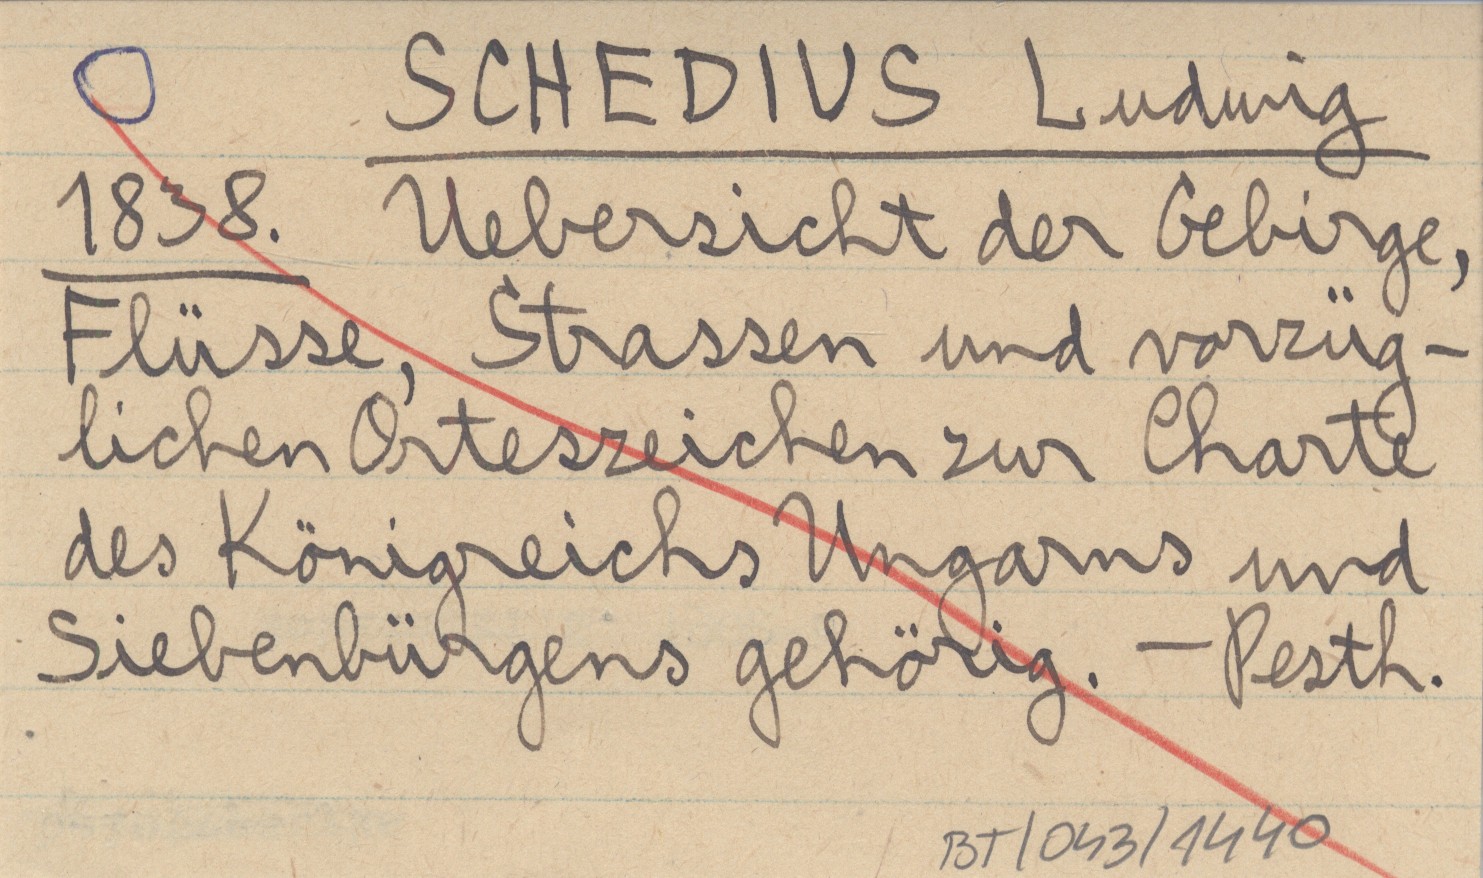 SCHEDIUS Ludwig
1838. Uebersicht der Gebirge,
Flüsse, Strassen und vorzüg-
lichen Orteszeichen zur Charte
des Königreichs Ungarns und
Siebenbürgens gehörig. — Pesth.
BT/043/1440